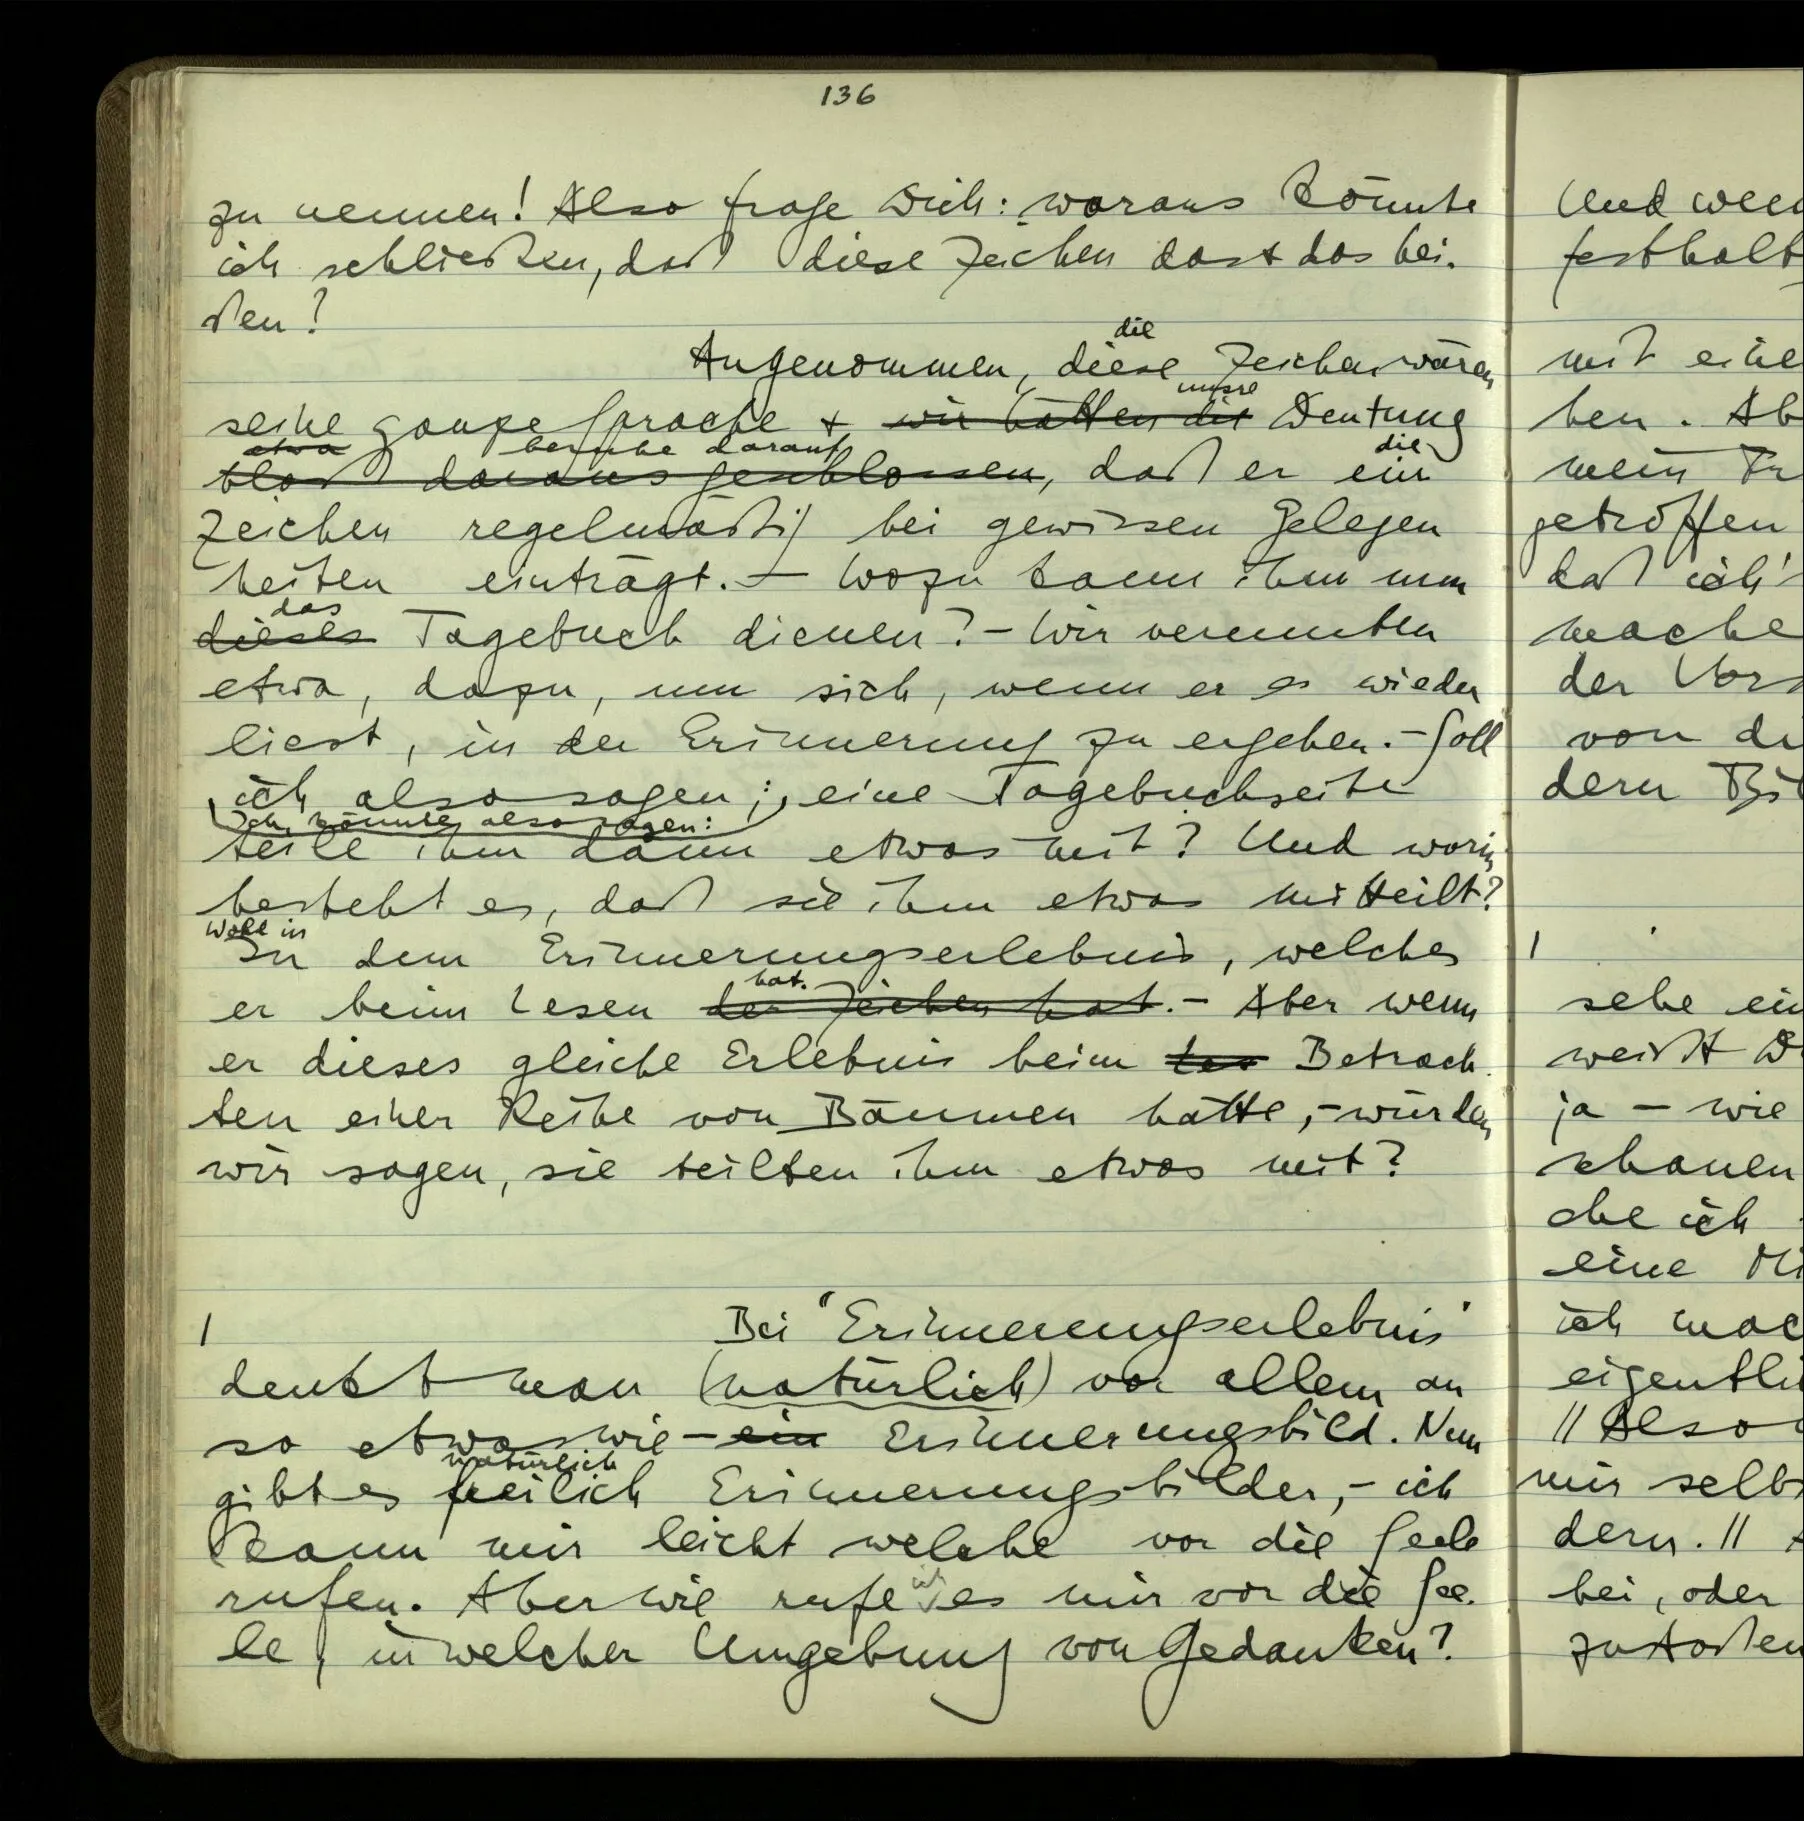 136
zu nennen! Also frage Dich: woraus könnte
ich schließen, daß diese Zeichen das & das hei-
ßen?
die
Angenommen, diese Zeichen wären
unsre
seine ganze Sprache & wir hätten die Deutung
etwa beruhe darauf die
bloß daraus geschlossen, daß er ein
Zeichen regelmäßig bei gewissen Gelegen
heiten einträgt. – Wozu kann ihm nun
das
dieses Tagebuch dienen? – Wir vermuten
etwa, dazu, um sich, wenn er es wieder
liest, in der Erinnerung zu ergehen. – Soll
ich also sagen; eine Tagebuchseite
Ich könnte also sagen:
teile ihm dann etwas mit? Und worin
besteht es, daß sie ihm etwas mitteilt?
Wohl in
In dem Erinnerungserlebnis, welches
hat.
er beim Lesen der Zeichen hat. – Aber wenn
er dieses gleiche Erlebnis beim Betrach-
ten einer Reihe von Bäumen hätte, – würden
wir sagen, sie teilten ihm etwas mit?
/ Bei "Erinnerungserlebnis"
denkt man (natürlich) vor allem an
so etwas wie – ein Erinnerungsbild. Nun
natürlich
gibt es freilich Erinnerungsbilder, – ich
kann mir leicht welche vor die Seele
ich
rufen. Aber wie rufe es mir vor die See-
le, in welcher Umgebung von Gedanken?
Und wen
festhalt
mit eine
ben. Ab
mein
getroffen
daß ich
mache
der Vors
von di
dern Bil
/
sehe ein
weißt D
ja – wie
schauen
che ich
eine Mi
ich mac
eigentli
// Also
mir selb
dern. //
bei, oder
zustoßen